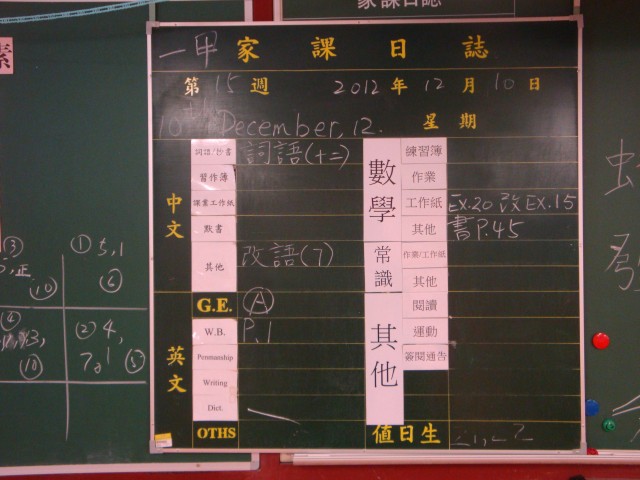 家課日誌
素
一甲 家課日誌
第 15 週 2012 年 12 月 10 日
10th December, 12. 星期
中文
詞語/抄書 詞語(十二)
習作簿
課業工作紙
默書
其他 改語(7)
英文
G.E. Ⓐ
W.B. P.1
Penmanship
Writing
Dict.
OTHS
數學
練習簿
作業
工作紙 EX.20 改EX.15
其他 書P.45
常識
作業/工作紙
其他
其他
閱讀
運動
簽閱通告
值日生 21,22
③
正
⑩
① 5,1
⑥
④
13,
⑩
② 4,
7,1 ③